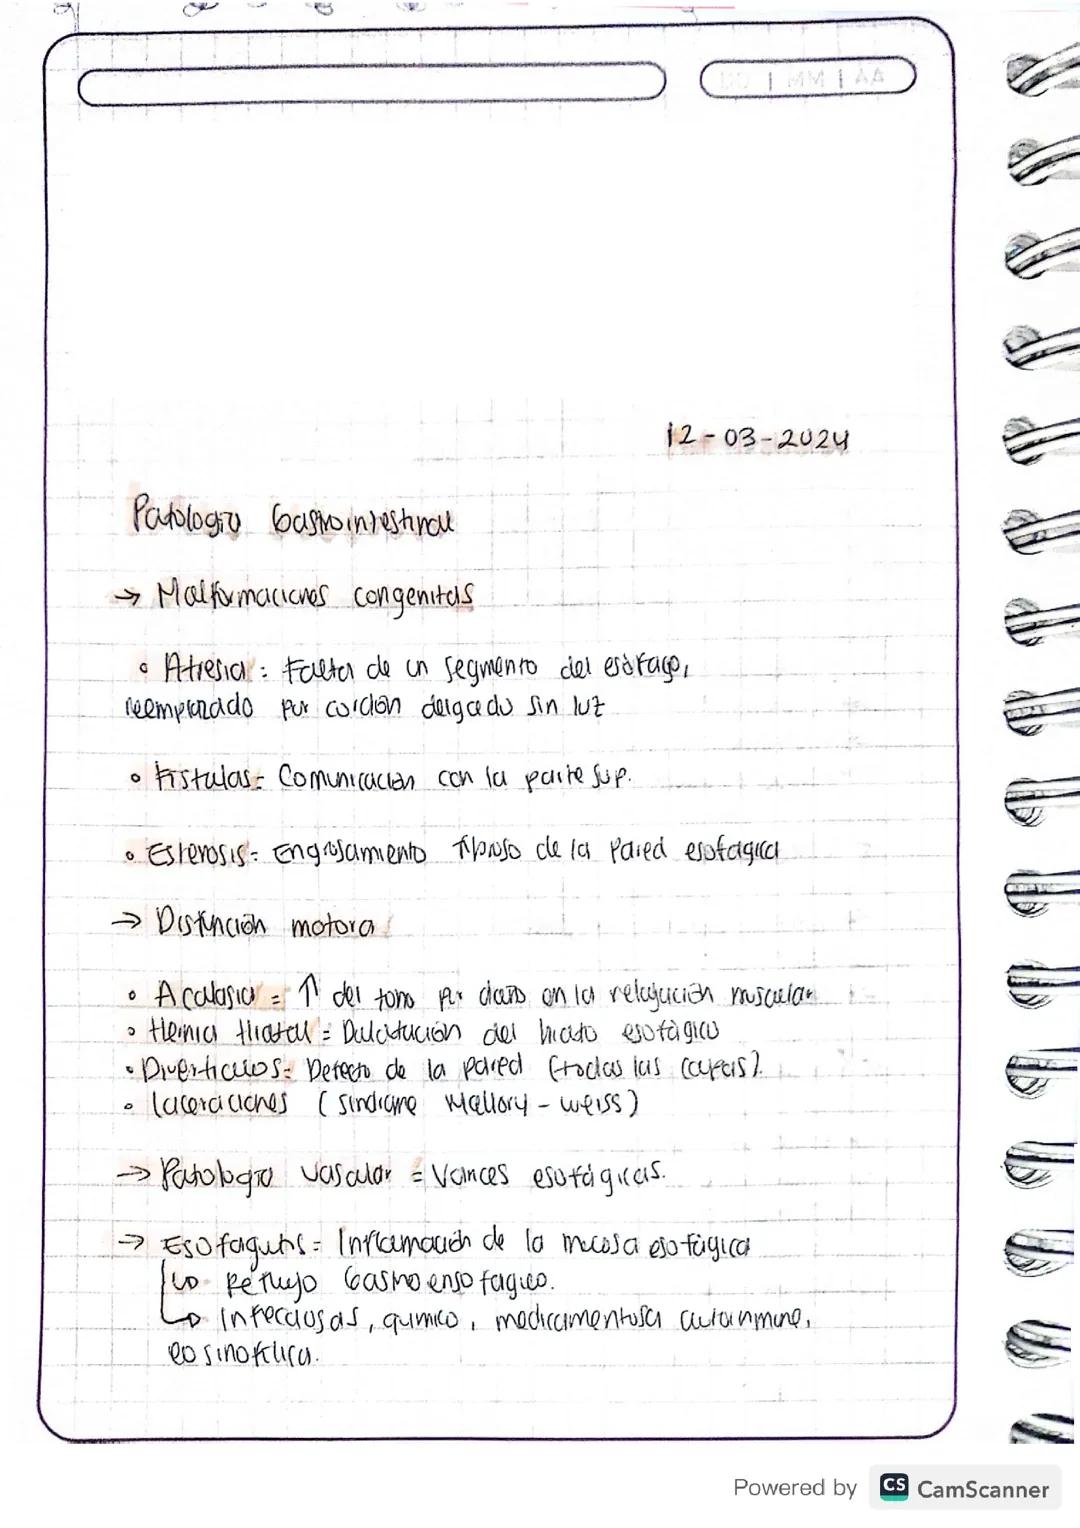 DD | MM | AA
12-03-2024
Patología Gastrointestinal
→ Malformaciones congenitas
• Atresia: Falta de un segmento del esófago,
reemplazado por cordón delgado sin luz
• Fistulas= Comunicación con la parte sup.
• Estenosis= Engrosamiento fibroso de la Pared esofágica
→ Disfunción motora
• Acalasia = ↑ del tono por daño en la relajación muscular
• Hernia Hiatal = Dilatación del hiato esofágico
• Diverticulos= Defecto de la pared (todas las capas).
• Laceraciones (sindrome Mallory-weiss)
→ Patología vascular = Varices esofágicas.
→ Esofagitis= Inflamación de la mucosa esofágica
↳ Reflujo Gastroensofagico.
↳ Infecciosas, quimico, medicamentosa autoinmune,
eosinofilica.
Powered by CS CamScanner